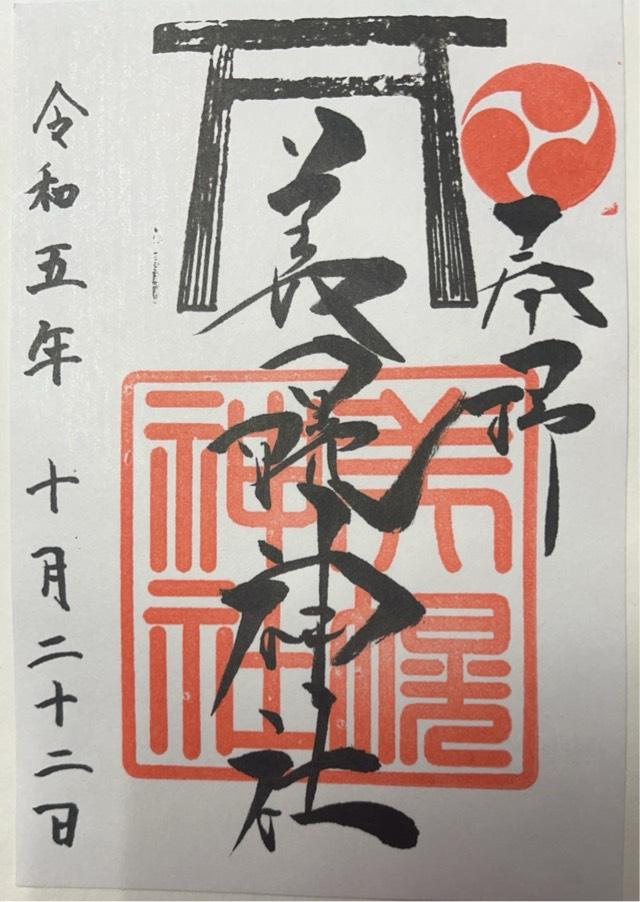 奉拝
美幌神社
美幌
神社
令和五年 十月二十二日